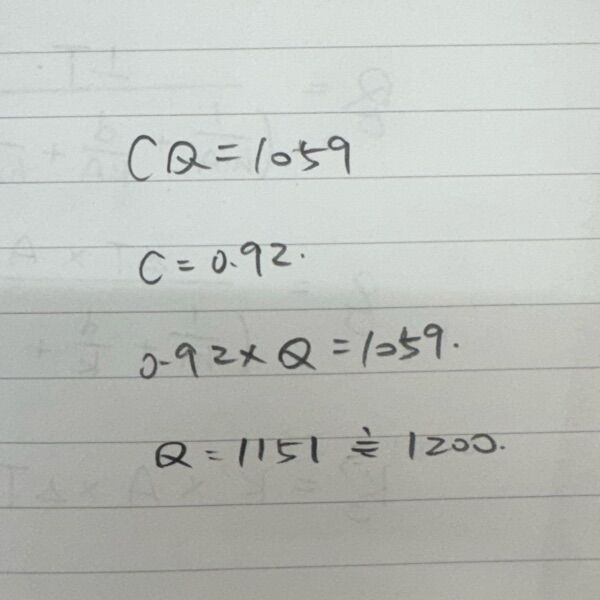 CQ=1059
C=0.92.
0.92×Q=1059.
Q=1151≒1200.